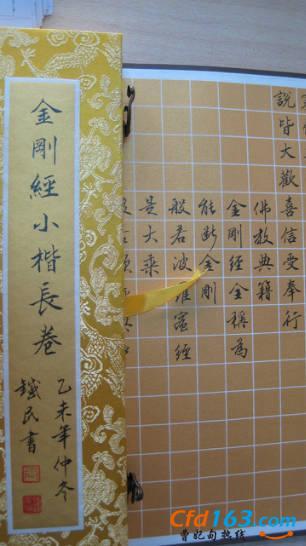 金剛經小楷長卷
乙未年仲冬
鐵民書
說皆大歡喜信受奉行
佛教典籍
金剛經全稱為
能斷金剛
般若波羅蜜經
是大乘
Cfd163.com
曹妃甸热线